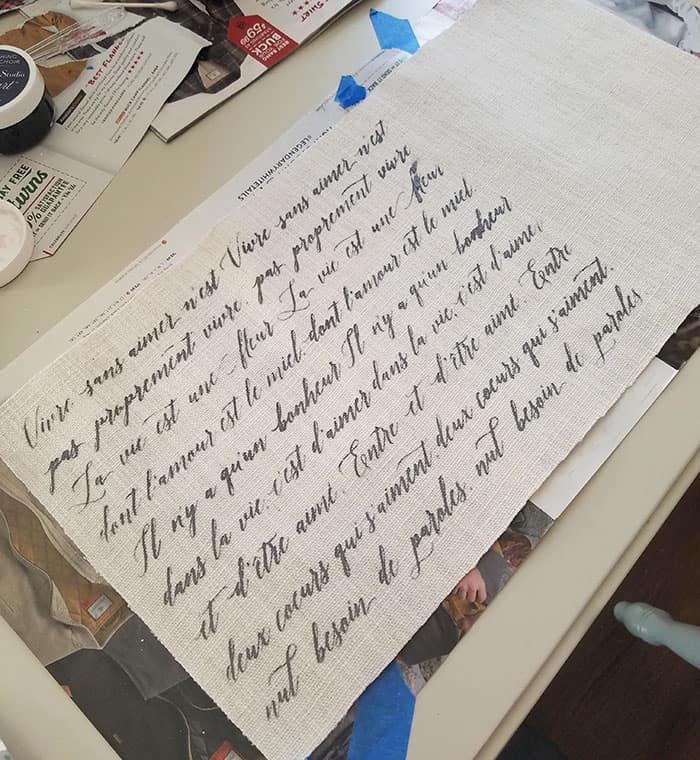 SHIRT
$59.99
BUCK
BEST FLANN
AY FREE
urns
SATISFACTION
GUARANTEE
#LEGENDARYWHITETAILS
Vivre sans aimer n'est Vivre sans aimer n'est
pas proprement vivre. pas proprement vivre
La vie est une fleur La vie est une fleur
dont l'amour est le miel. dont l'amour est le miel
Il n'y a qu'un bonheur Il n'y a qu'un bonheur
dans la vie, c'est d'aimer dans la vie, c'est d'aime,
et d'être aimé. Entre et d'être aimé. Entre
deux coeurs qui s'aiment, deux coeurs qui s'aiment,
nut besoin de paroles. nut besoin de paroles